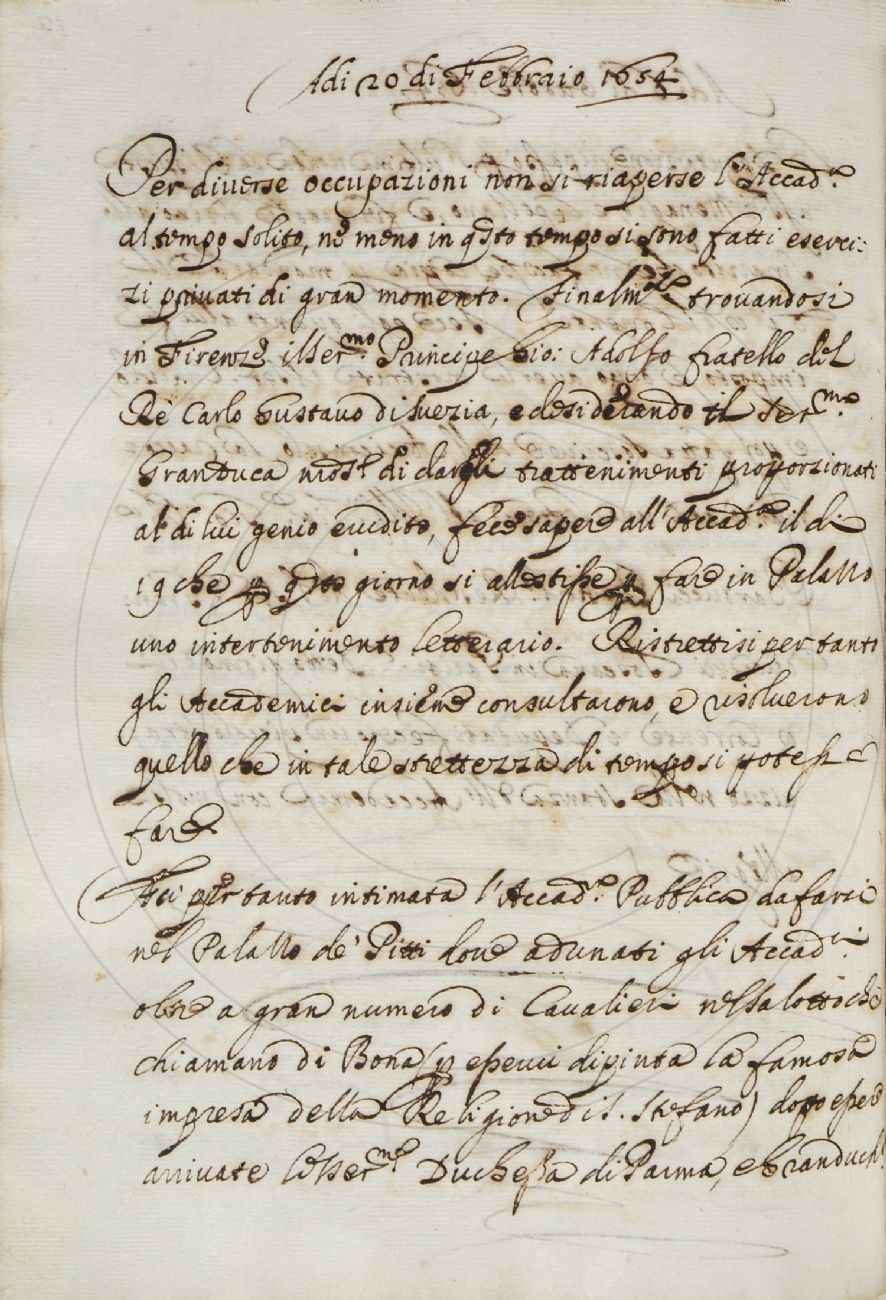 Adi 20 di Febbraio 1654
Per diverse occupazioni non si riaperse l'Accad.ª
al tempo solito, nè meno in qsto tempo si sono fatti eserci:
zi privati di gran momento. Finalm.te trovandosi
in Firenze il Ser.mo Principe Gio: Adolfo fratello del
Rè Carlo Gustavo di Suezia, e desiderando il Ser.mo
Granduca nost. di dargli trattenimenti proporzionati
al di lui genio erudito, fece sapere all'Accad.ª il di
19 che p qsto giorno si allestisse p fare in Palazzo
uno intertenimento letterario. Ristrettisi per tanto
gli Accademici insieme consultarono, e risolverono
quello che in tale strettezza di tempo si potesse
fare.
Fu per tanto intimata l'Accad.ª Pubblica da farsi
nel Palazzo de' Pitti dove adunati gli Accad.ci
oltre a gran numero di Cavalieri nel salotto che
chiamano di Bona (p esservi dipinta la famosa
impresa della Religione di S. Stefano) dopo essere
arrivate le Ser.me Duchessa di Parma, e Granduch.